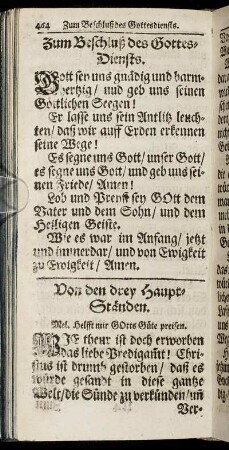 464 Zum Beschluß des Gottesdiensts.
Zum Beschluß des Gottes-
Diensts.
Gott sey uns gnädig und barm-
hertzig/ und geb uns seinen
Göttlichen Seegen!
Er lasse uns sein Antlitz leuch-
ten/ daß wir auff Erden erkennen
seine Wege!
Es segne uns Gott/ unser Gott/
es segne uns Gott/ und geb uns sei-
nen Friede/ Amen!
Lob und Preyß sey GOtt dem
Vater und dem Sohn/ und dem
Heiligen Geiste.
Wie es war im Anfang/ jetzt
und immerdar/ und von Ewigkeit
zu Ewigkeit/ Amen.
Von den drey Haupt-
Ständen.
Mel. Helfft mir GOtts Güte preisen.
WIE theur ist doch erworben
das liebe Predigamt! Chri-
stus ist drumb gestorben/ daß es
würde gesandt in diese gantze
Welt/ die Sünde zu verkünden/ uñ
Ver-